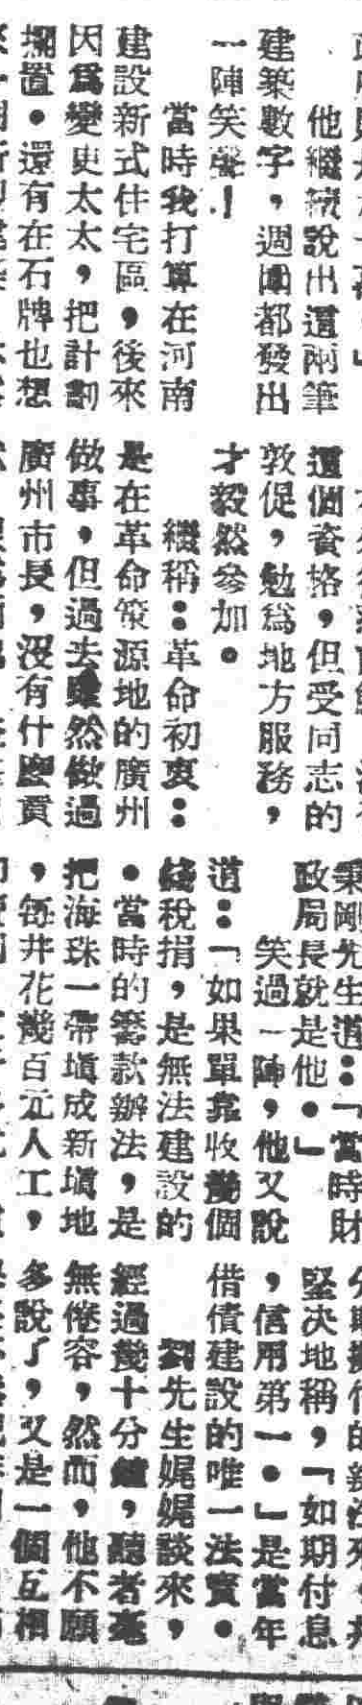 他繼續說出這兩筆
建築數字，週圍都發出
一陣笑聲！
當時我打算在河南
建設新式住宅區，後來
因爲變更太太，把計劃
擱置．還有在石牌也想
還個資格，但受同志的
敦促，勉爲地方服務，
才毅然參加。
繼稱：革命初衷：
是在革命策源地的廣州
做事，但過去雖然做過
廣州市長，沒有什麼貢
秉剛先生道：「當時財
政局長就是他．」
笑過一陣，他又說
道：「如果單靠收幾個
錢稅捐，是無法建設的
．當時的籌款辦法，是
把海珠一帶塡成新塡地
，每井花幾百元人工，
堅决地稱，「如期付息
，信用第一．」是當年
借債建設的唯一法寶．
劉先生娓娓談來，
經過幾十分鐘，聽者毫
無倦容，然而，他不願
多說了，又是一個互相